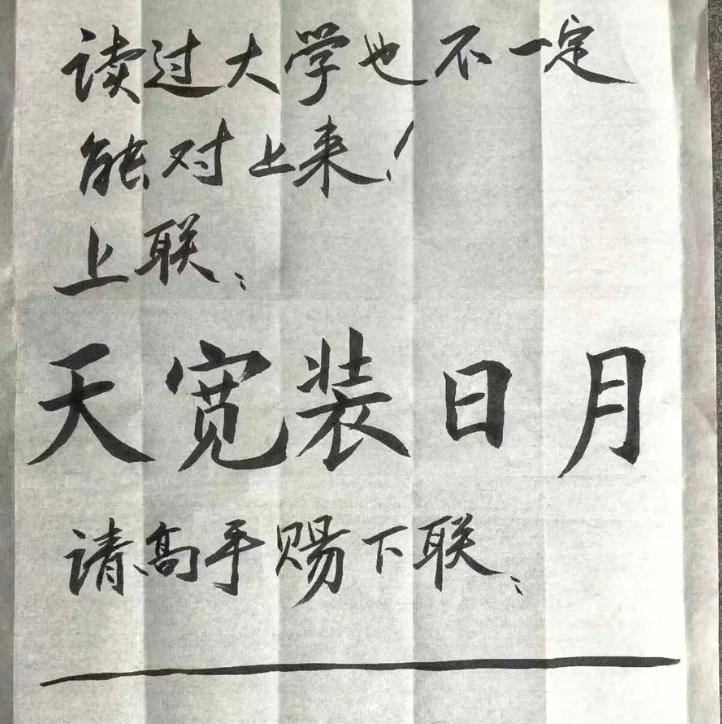 读过大学也不一定
能对上来！
上联：
天宽装日月
请高手赐下联：